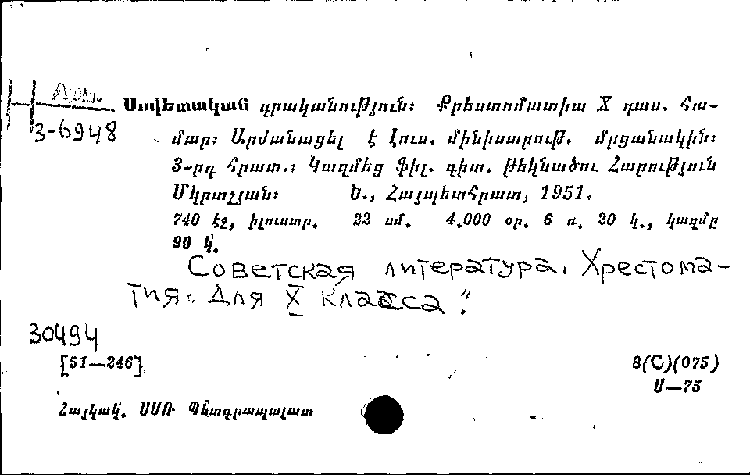 Арм.
3-6948
Սովետական գրականություն։ Քրեստոմատիա X դաս. Հա-
մար։ Արժանացել է Լուս. մինիստրութ. մրցանակին։
3-րդ հրատ.։ Կազմեց ֆիլ. գիտ. թեկնածու Հարություն
Մկրտչյան։ Ե., Հայպետհրատ, 1951.
740 էջ, իլուստր. 22 սմ. 4.000 օր. 6 ռ. 20 կ., կազմը
90 կ.
Советская литература. Хрестома-
тия. Для X класса".
30494
[51—246]
8(С)(075)
Ս—75
Հայկակ. ՍՍՌ Պետգրապալատ